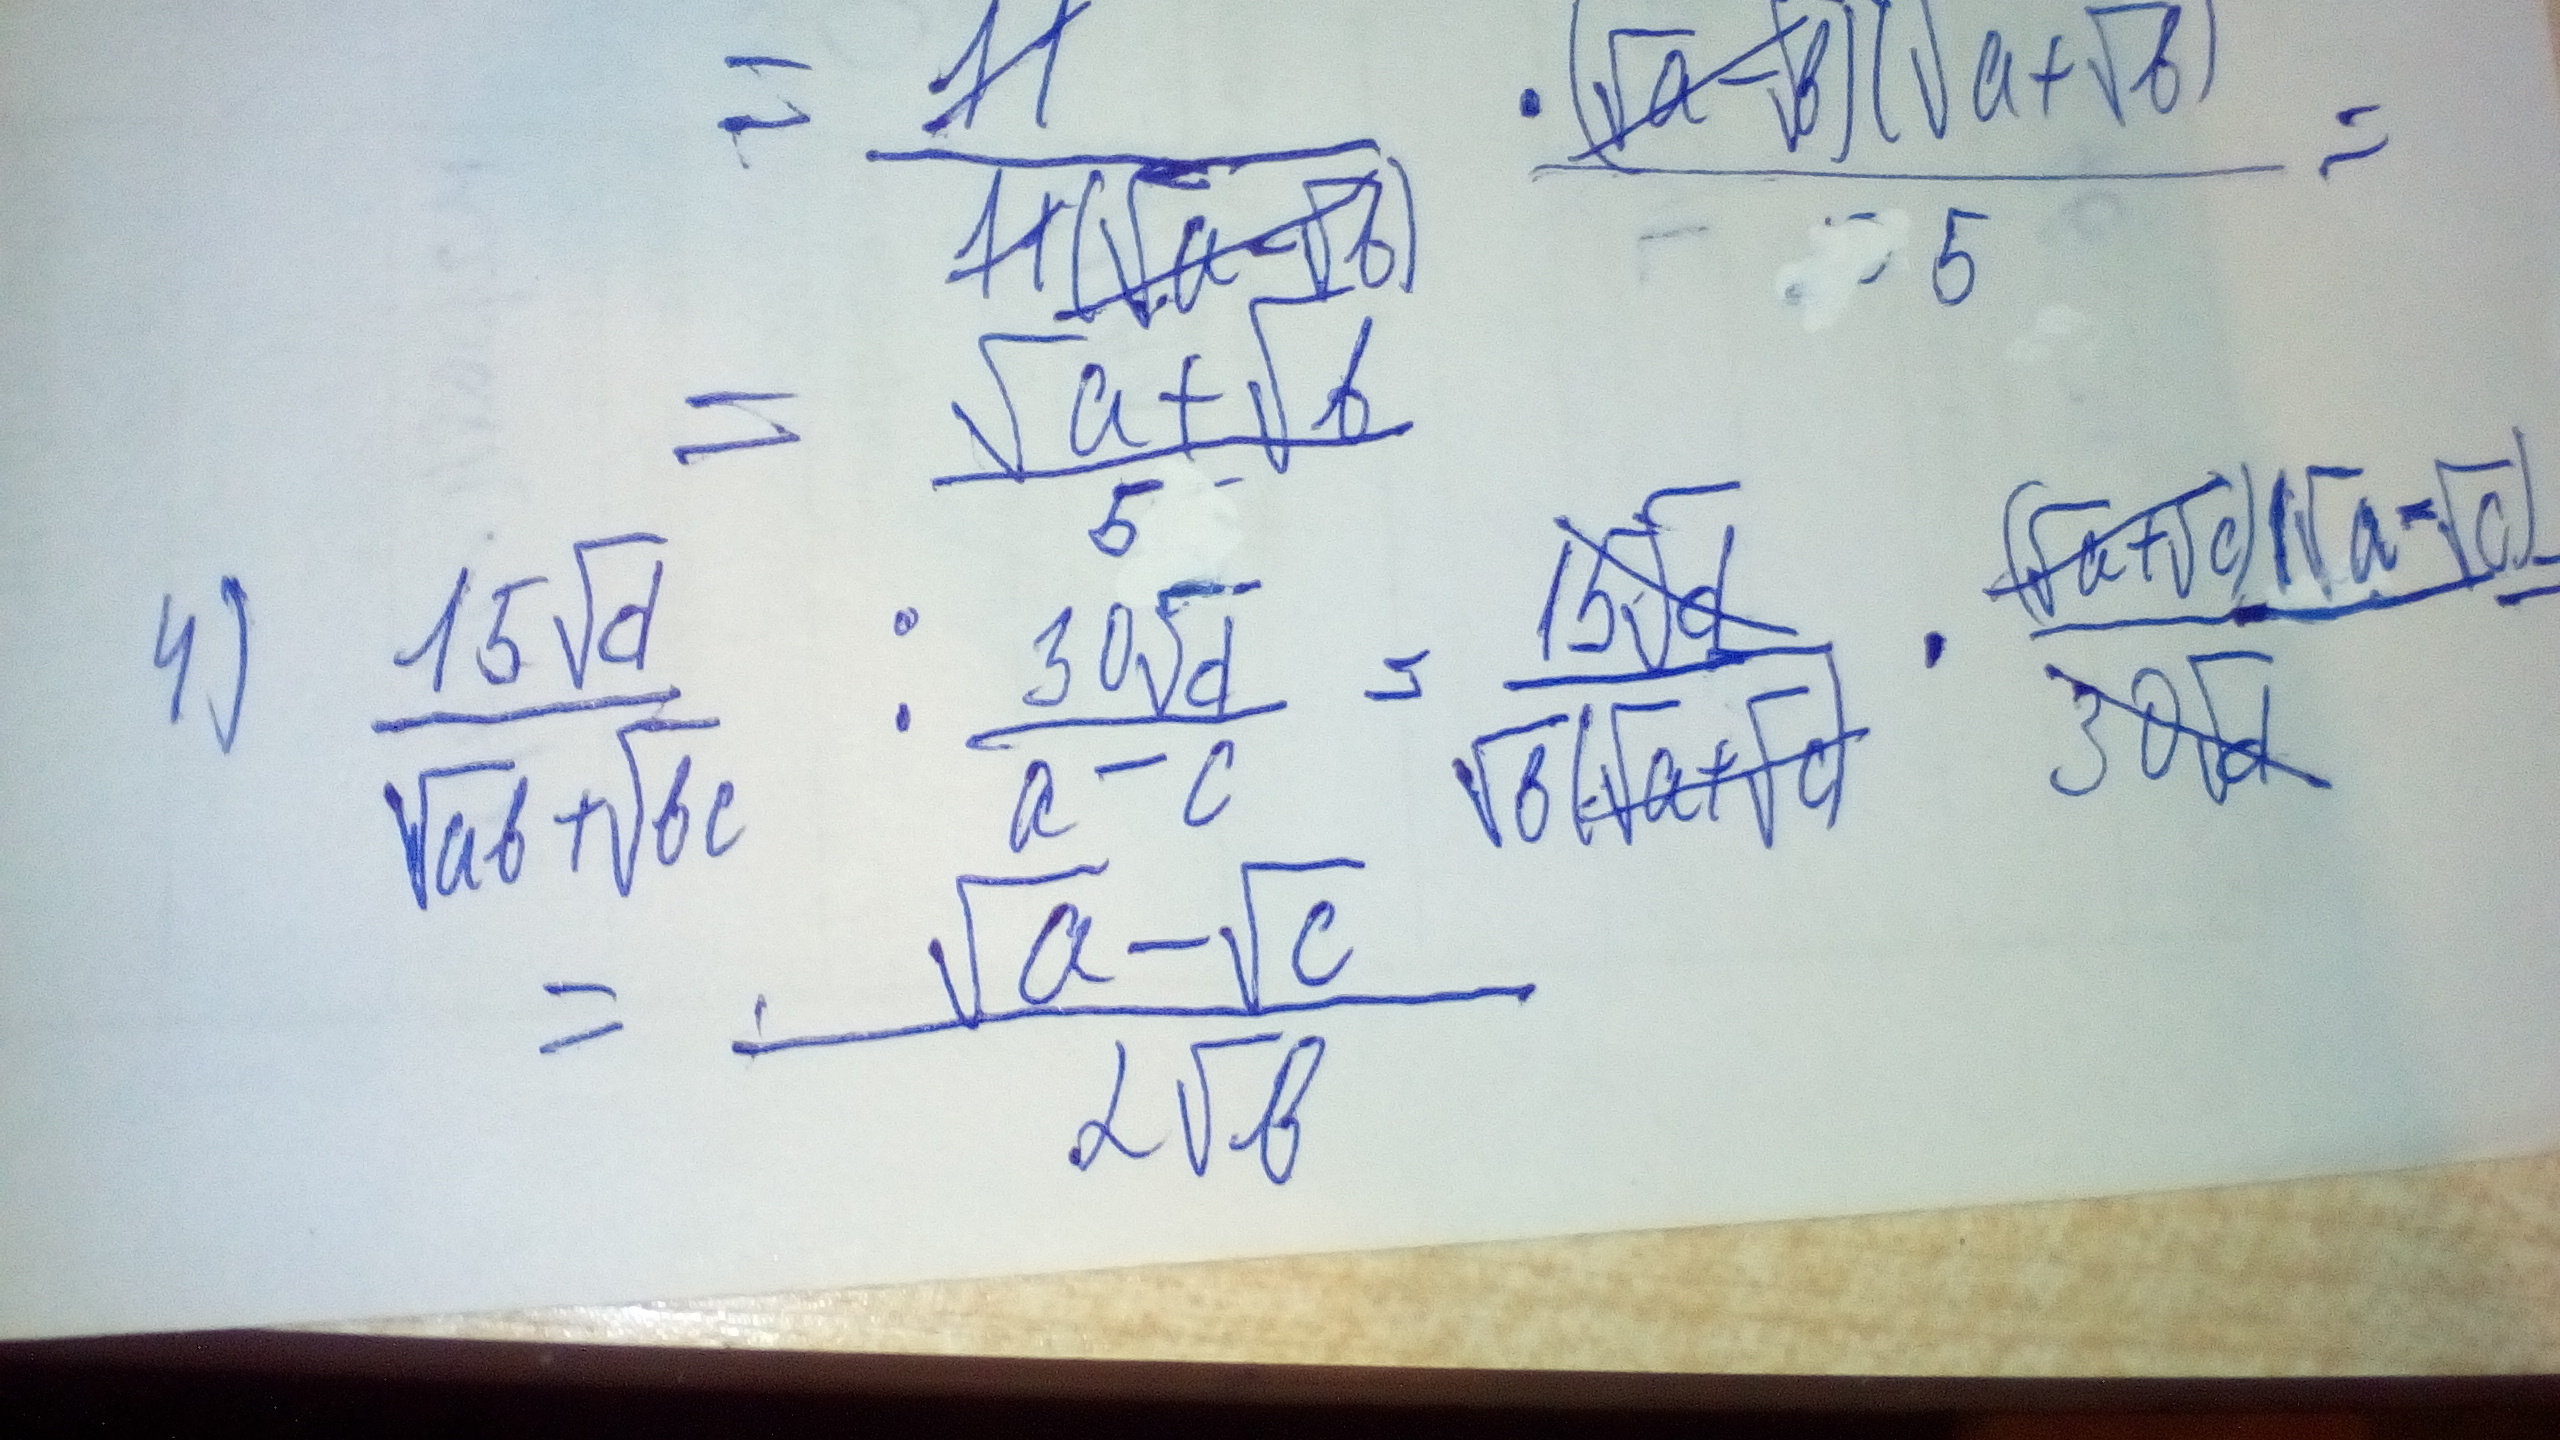 = 11/11(√a-√b) · (√a-√b)(√a+√b)/5 =
= √a+√b/5
4) 15√d/√ab+√bc : 30√d/a-c = 15√d/√b(√a+√c) · (√a+√c)(√a-√c)/30√d =
= √a-√c/2√b